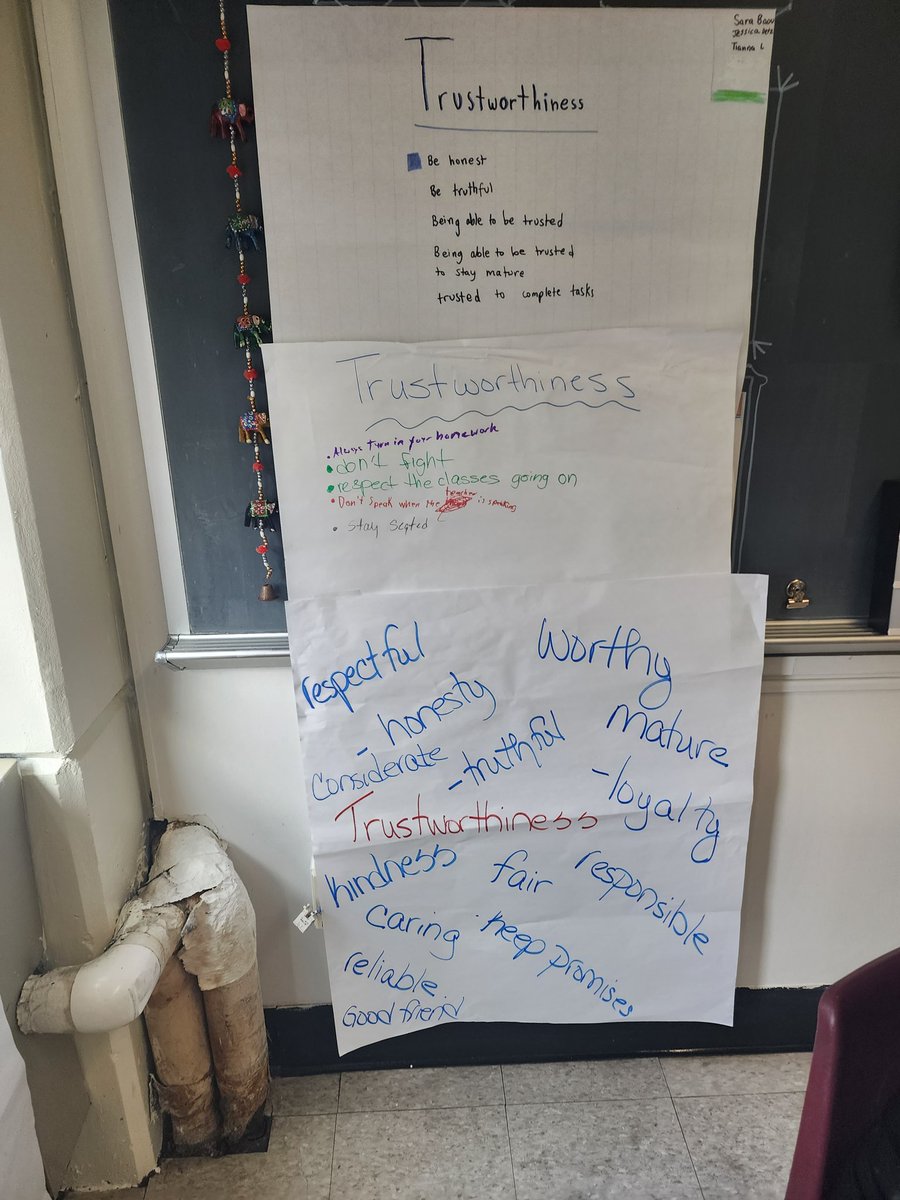 Sara
Jessica
Tianna L
Trustworthiness
Be honest
Be truthful
Being able to be trusted
Being able to be trusted
to stay mature
trusted to complete tasks
Trustworthiness
• Always turn in your homework
• don't fight
• respect the classes going on
teacher
• Don't speak when the is speaking
• Stay Seated
respectful
worthy
- honesty
mature
Considerate
- truthful
- loyalty
Trustworthiness
kindness
fair
responsible
Caring
keep promises
reliable
Good friend